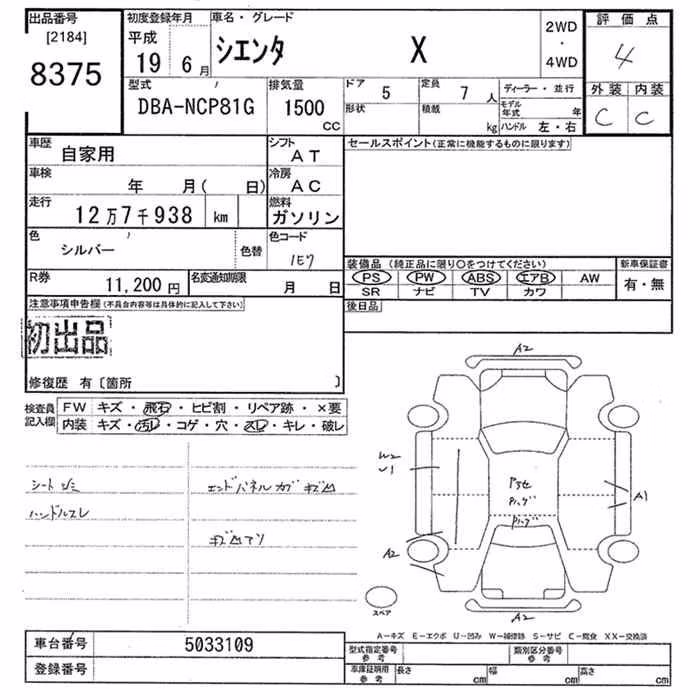 出品番号
[2184]
8375
初度登録年月
平成
19 6月
車名・グレード
シエンタ X
2WD
・
4WD
評価点
4
外装 内装
C C
型式
DBA-NCP81G
排気量
1500
CC
ドア 5
定員 7 人
形状
積載 kg
ディーラー・並行
モデル年式 年
ハンドル 左・右
車歴
自家用
シフト
AT
車検
年 月( 日)
冷房
AC
走行
12万7千938 km
燃料
ガソリン
色
シルバー
色替
色コード
1E7
R券
11,200円
名変通知期限
月 日
セールスポイント(正常に機能するものに限ります)
装備品(純正品に限り○をつけてください)
新車保証書
PS PW ABS エアB AW
SR ナビ TV カワ
有・無
後日品
注意事項申告欄(不具合内容等は具体的に記入して下さい)
初出品
修復歴 有〔箇所 〕
検査員記入欄
FW キズ・飛石・ヒビ割・リペア跡・×要
内装 キズ・汚レ・コゲ・穴・スレ・キレ・破レ
シートシミ
ハンドルスレ
エンドパネルカブキズ凹
キズ凹アリ
A2
W2
U1
A1
A2
スペア
A2
A−キズ E−エクボ U−凹み W−補修跡 S−サビ C−腐食 XX−交換済
車台番号 5033109
登録番号
型式指定番号
参考
類別区分番号
参考
車庫証明用
参考
長さ cm
幅 cm
高さ cm